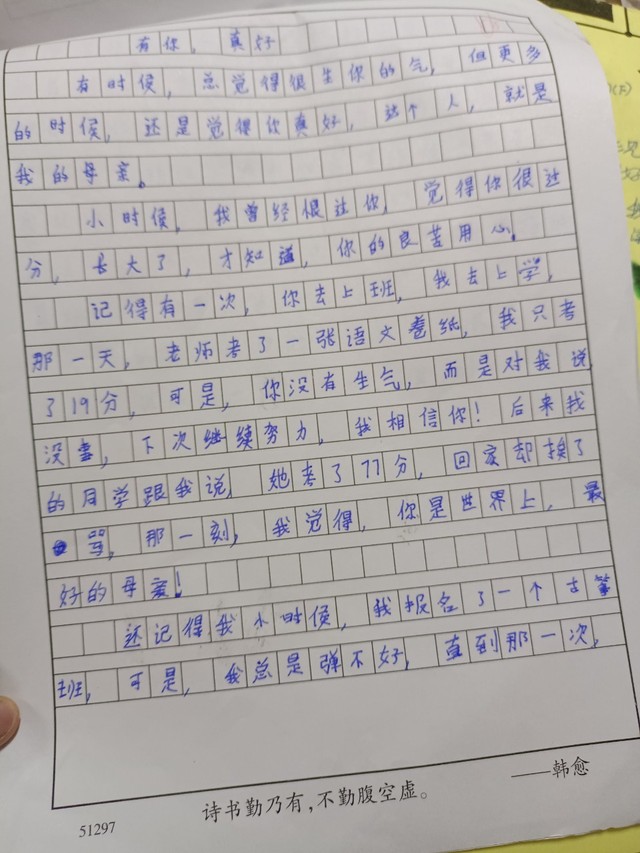 有你，真好
有时候，总觉得很生你的气，但更多
的时候，还是觉得你真好，这个人，就是
我的母亲。
小时候，我曾经恨过你，觉得你很过
分，长大了，才知道，你的良苦用心。
记得有一次，你去上班，我去上学，
那一天，老师考了一张语文卷纸，我只考
了19分，可是，你没有生气，而是对我说，
没事，下次继续努力，我相信你！后来我
的同学跟我说，她考了77分，回家却挨了
骂，那一刻，我觉得，你是世界上，最
好的母亲！
还记得我小时候，我报名了一个古筝
班，可是，我总是弹不好，直到那一次，
——韩愈
诗书勤乃有，不勤腹空虚。
51297